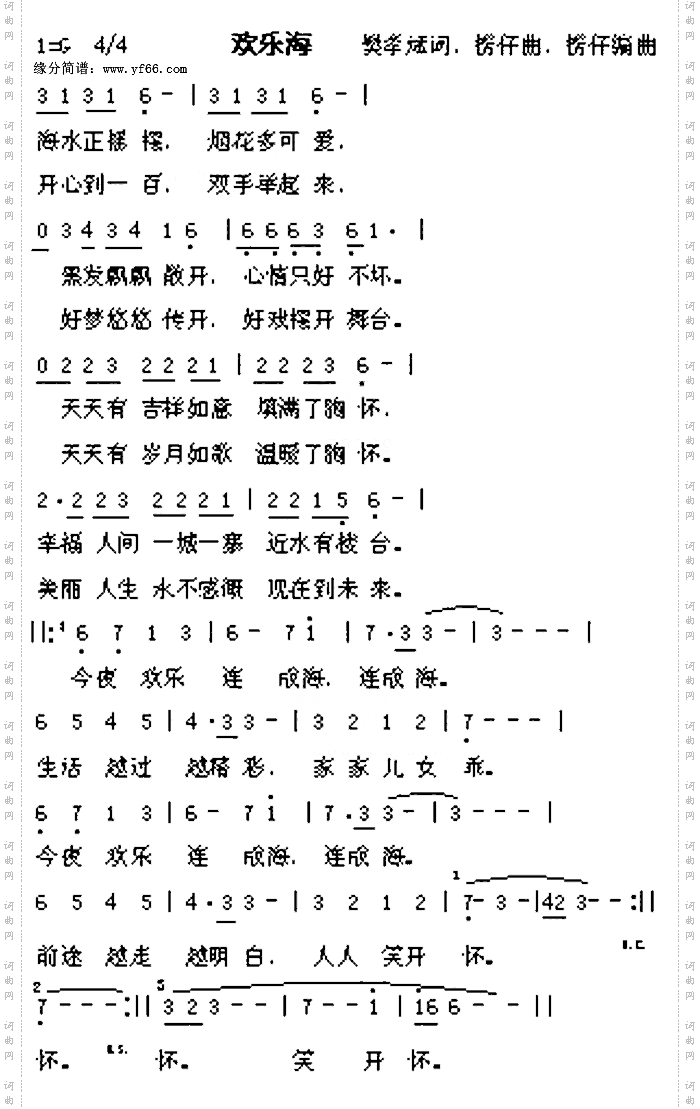 1=G 4/4 欢乐海 樊孝斌词，捞仔曲，捞仔编曲
缘分简谱：www.yf66.com
3 1 3 1 6 - | 3 1 3 1 6 - |
海水正摇 摆， 烟花多可 爱，
开心到一 百， 双手举起 来，
0 3 4 3 4 1 6 | 6 6 6 3 6 1 · |
黑发飘飘 散开， 心情只好 不坏。
好梦悠悠 传开， 好戏摆开 舞台。
0 2 2 3 2 2 2 1 | 2 2 2 3 6 - |
天天有 吉祥如意 填满了胸 怀，
天天有 岁月如歌 温暖了胸 怀。
2 · 2 2 3 2 2 2 1 | 2 2 1 5 6 - |
幸福 人间 一城一寨 近水有楼 台。
美丽 人生 水不感慨 现在到未 来。
||: 6 7 1 3 | 6 - 7 1 | 7 · 3 3 - | 3 - - - |
今夜 欢乐 连 成海，连成海。
6 5 4 5 | 4 · 3 3 - | 3 2 1 2 | 7 - - - |
生活 越过 越精彩， 家家儿女 乖。
6 7 1 3 | 6 - 7 1 | 7 · 3 3 - | 3 - - - |
今夜 欢乐 连 成海，连成海。
1
6 5 4 5 | 4 · 3 3 - | 3 2 1 2 | 7 - 3 - | 42 3 - - :||
前途 越走 越明白，人人 笑开 怀。 D.C.
2 3
7 - - - :|| 3 2 3 - - | 7 - - 1 | 16 6 - - ||
怀。 D.S. 怀。 笑 开 怀。
词曲网